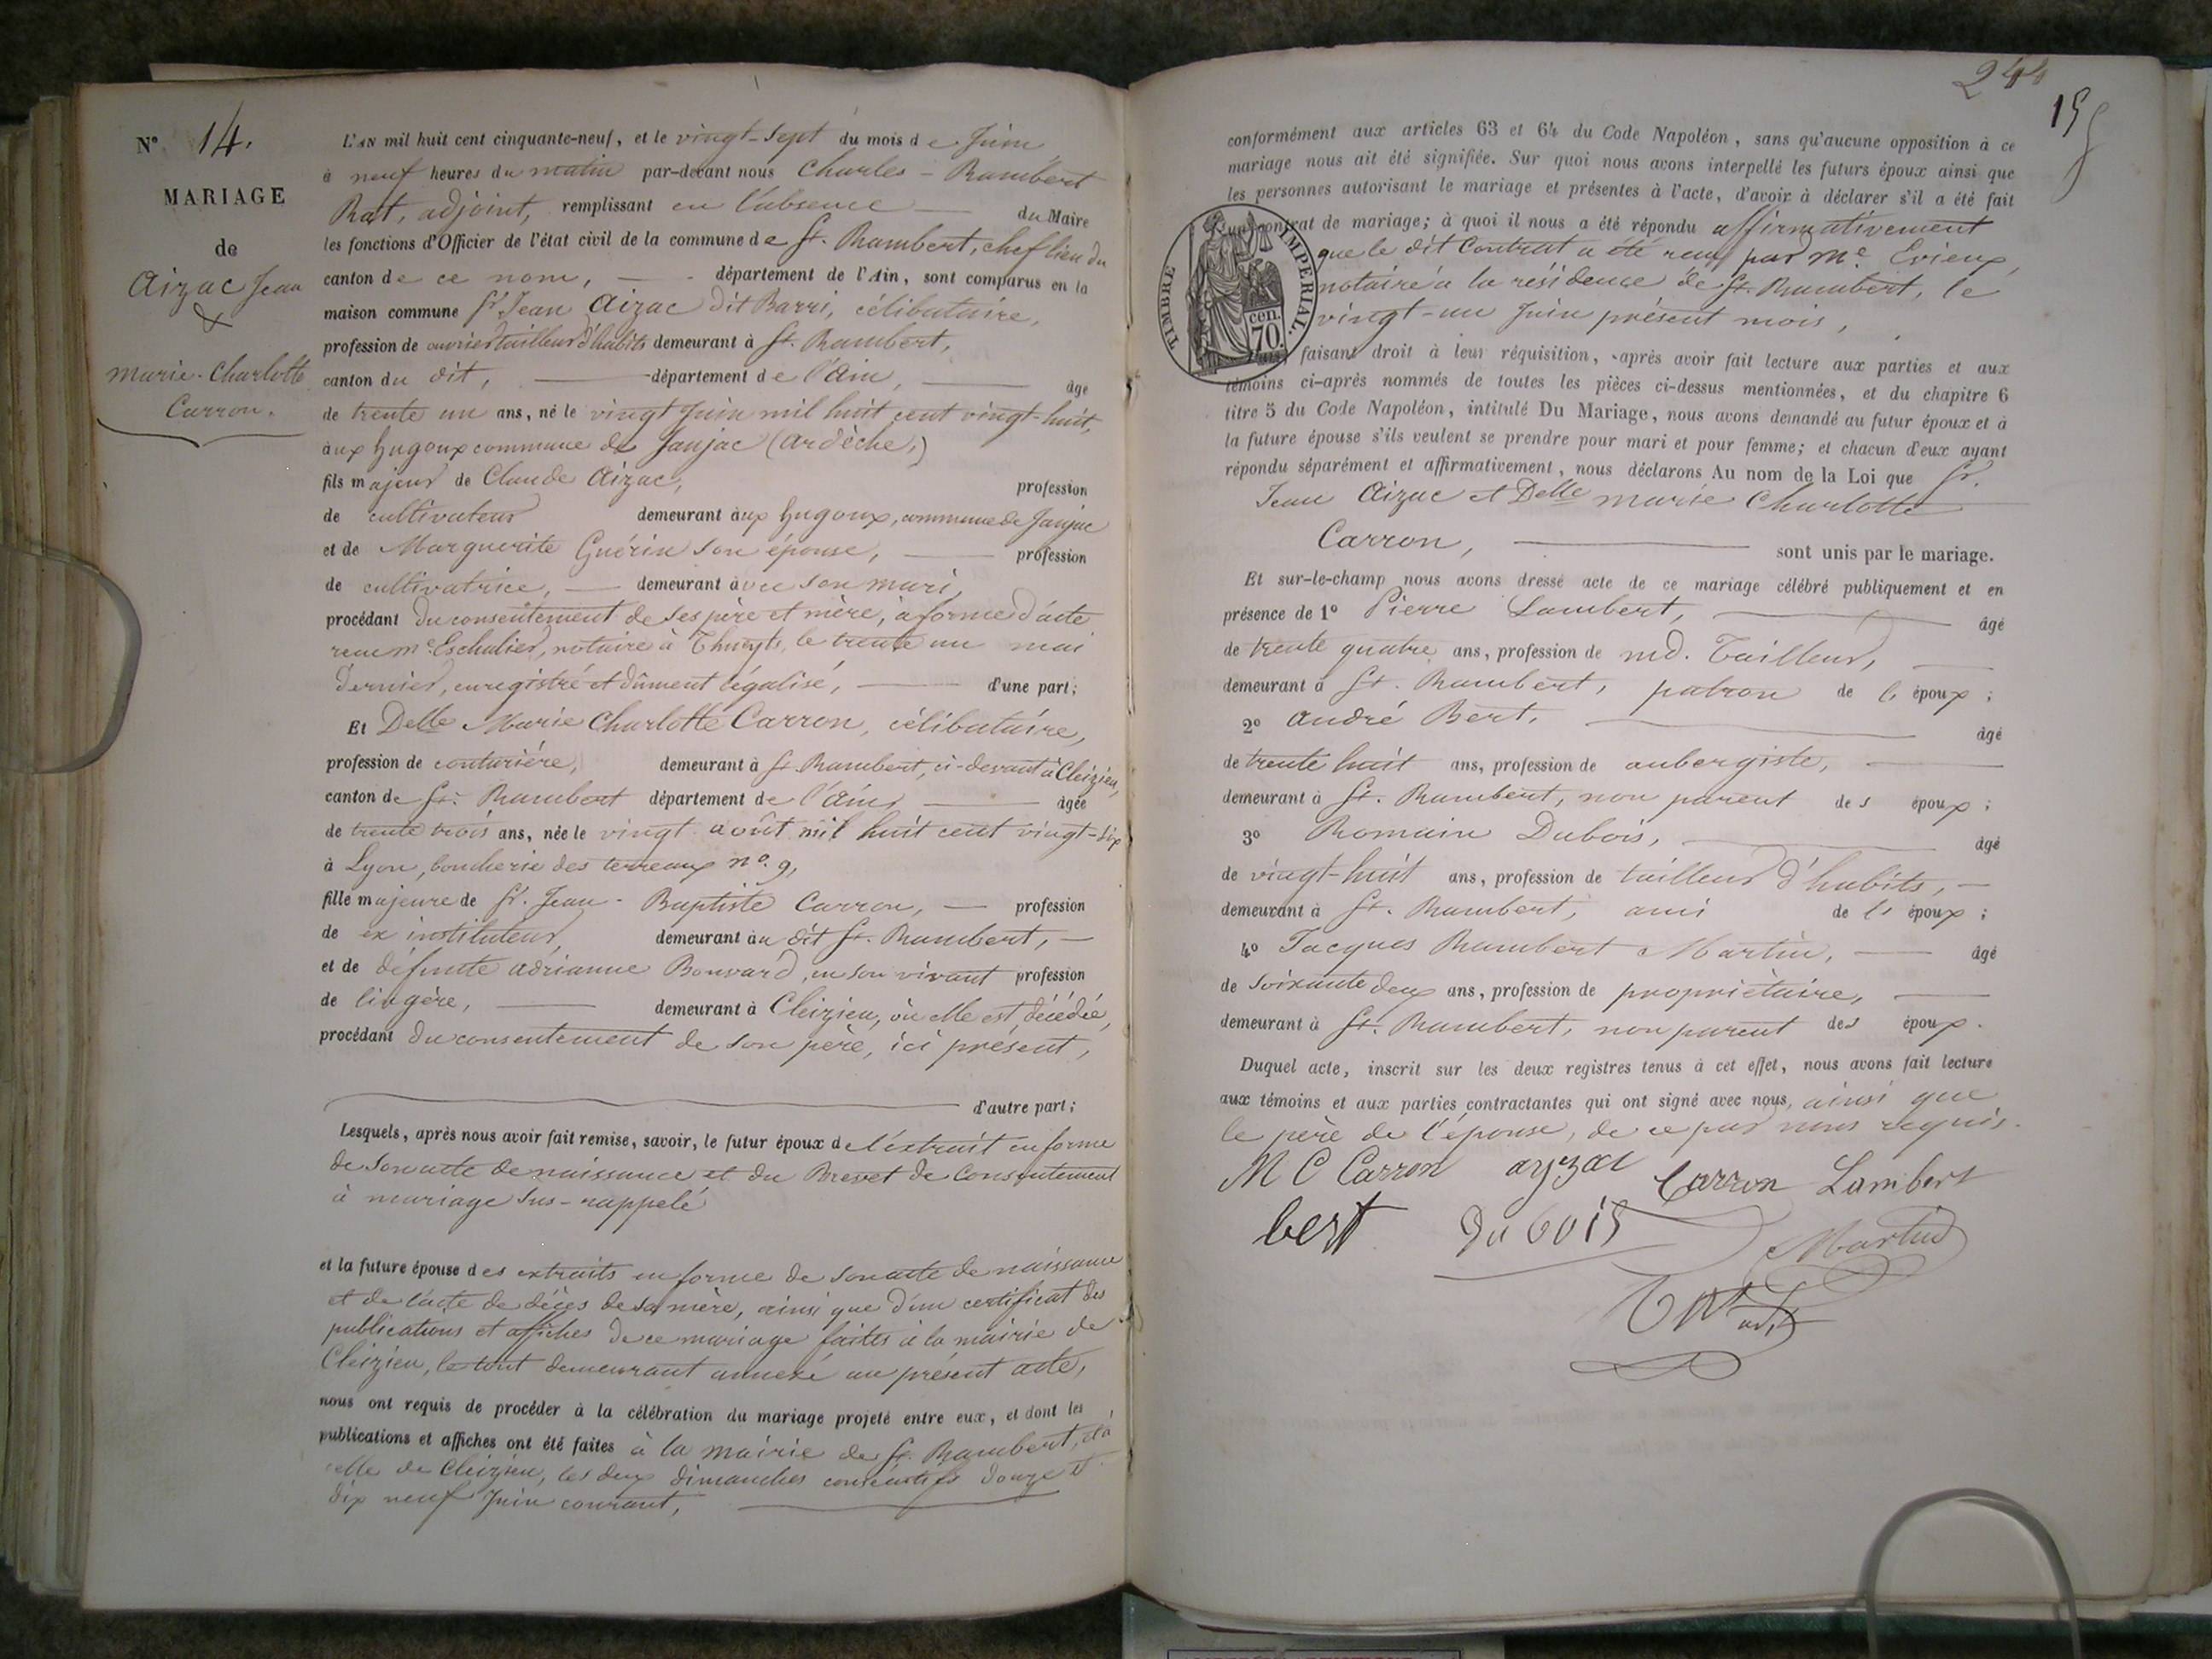 N° 14.
MARIAGE
de
Aizac Jean
&
Marie-Charlotte
Carron.
L'AN mil huit cent cinquante-neuf, et le vingt-sept du mois de Juin
à neuf heures du matin par-devant nous Charles-Rambert
Rat, adjoint, remplissant en l'absence du Maire
les fonctions d'Officier de l'état civil de la commune de St. Rambert, chef lieu du
canton de ce nom, département de l'Ain, sont comparus en la
maison commune Sr. Jean Aizac dit Barri, célibataire,
profession de ouvrier tailleur d'habits demeurant à St. Rambert,
canton du dit, département de l'Ain, âgé
de trente un ans, né le vingt Juin mil huit cent vingt-huit,
aux hugoux commune de Jaujac (ardèche,)
fils majeur de Claude Aizac, profession
de cultivateur demeurant aux hugoux, commune de Jaujac
et de Marguerite Guérin son épouse, profession
de cultivatrice, demeurant avec son mari,
procédant du consentement de ses père et mère, à forme d'acte
reçu me. Eschalier, notaire à Thueyts, le trente un mai
dernier, enregistré et dûment légalisé, d'une part;
Et Delle Marie Charlotte Carron, célibataire,
profession de couturière, demeurant à St. Rambert, ci-devant à Cleizieu,
canton de St. Rambert département de l'Ain, âgée
de trente trois ans, née le vingt août mil huit cent vingt-six
à Lyon, boucherie des terreaux n°. 9,
fille majeure de Sr. Jean-Baptiste Carron, profession
de ex instituteur, demeurant au dit St. Rambert,
et de défunte adrianne Bonvard, en son vivant profession
de lingère, demeurant à Cleizieu, où elle est décédée,
procédant du consentement de son père, ici présent,
d'autre part;
Lesquels, après nous avoir fait remise, savoir, le futur époux de l'extrait en forme
de son acte de naissance et du Brevet de consentement
à mariage sus-rappelé
et la future épouse des extraits en forme de son acte de naissance
et de l'acte de décès de sa mère, ainsi que d'un certificat des
publications et affiches de ce mariage faites à la mairie de
Cleizieu, le tout demeurant annexé au présent acte,
nous ont requis de procéder à la célébration du mariage projeté entre eux, et dont les
publications et affiches ont été faites à la mairie de St. Rambert, et à
celle de Cleizieu, les deux dimanches consécutifs douze et
dix neuf Juin courant,
244
conformément aux articles 63 et 64 du Code Napoléon, sans qu'aucune opposition à ce
mariage nous ait été signifiée. Sur quoi nous avons interpellé les futurs époux ainsi que
les personnes autorisant le mariage et présentes à l'acte, d'avoir à déclarer s'il a été fait
un contrat de mariage; à quoi il nous a été répondu affirmativement
que le dit Contrat a été reçu par Me. Evieux,
notaire à la résidence de St. Rambert, le
vingt-un Juin présent mois,
TIMBRE IMPERIAL.
cen.
70.
faisant droit à leur réquisition, après avoir fait lecture aux parties et aux
témoins ci-après nommés de toutes les pièces ci-dessus mentionnées, et du chapitre 6
titre 5 du Code Napoléon, intitulé Du Mariage, nous avons demandé au futur époux et à
la future épouse s'ils veulent se prendre pour mari et pour femme; et chacun d'eux ayant
répondu séparément et affirmativement, nous déclarons Au nom de la Loi que Sr.
Jean Aizac et Delle marie Charlotte
Carron, sont unis par le mariage.
Et sur-le-champ nous avons dressé acte de ce mariage célébré publiquement et en
présence de 1° Pierre Lambert, âgé
de trente quatre ans, profession de md. Tailleur,
demeurant à St. Rambert, patron de l' époux;
2° André Bert, âgé
de trente huit ans, profession de aubergiste,
demeurant à St. Rambert, non parent des époux;
3° Romain Dubois, âgé
de vingt-huit ans, profession de tailleur d'habits,
demeurant à St. Rambert, ami de l' époux;
4° Jacques Rambert Martin, âgé
de soixante deux ans, profession de propriétaire,
demeurant à St. Rambert, non parent des époux.
Duquel acte, inscrit sur les deux registres tenus à cet effet, nous avons fait lecture
aux témoins et aux parties contractantes qui ont signé avec nous, ainsi que
le père de l'épouse, de ce par nous requis.
M C Carron ayzac Carron Lambert
bert dubois Martin